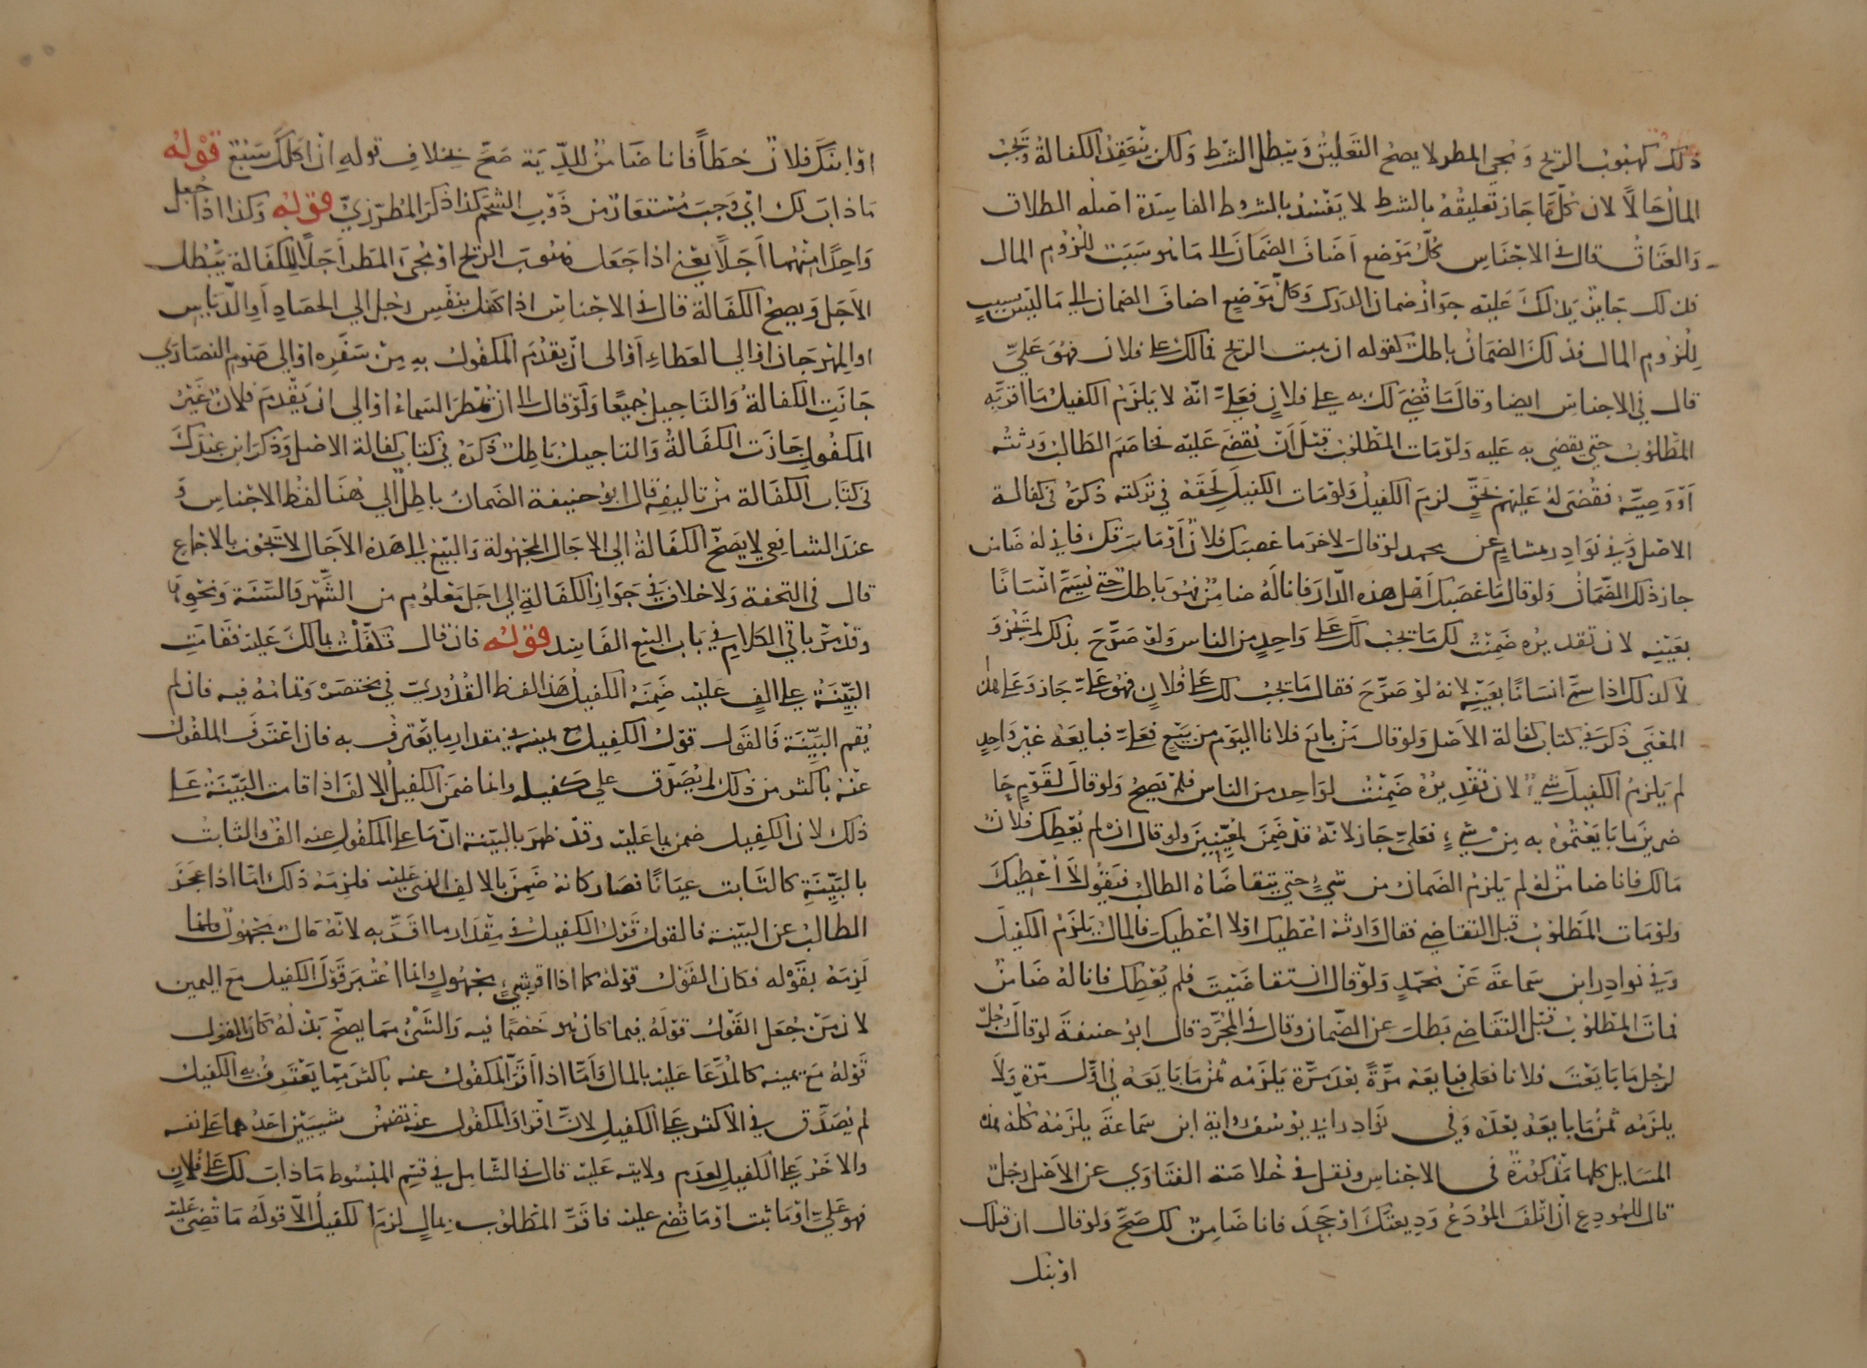 ذلك كهبوب الريح ومجي المطر لا يصح التعليق ويبطل الشرط ولكن تنعقد الكفالة ويجب
المال حالا لان كل ما جاز تعليقه بالشرط لا يفسد بالشروط الفاسدة اصله الطلاق
والعتاق قال في الاجناس كل موضع اضاف الضمان الى ما هو سبب للزوم المال
فذلك جايز يدلك عليه جواز ضمان الدرك وكل موضع اضاف الضمان الى ما ليس بسبب
للزوم المال فذلك الضمان باطل كقوله ان هبت الريح فمالك على فلان فهو علي
قال في الاجناس ايضا وقال ما قضي لك به على فلان فعلي انه لا يلزم الكفيل ما اقر به
المطلوب حتى يقضى به عليه ولو مات المطلوب قبل ان يقضى عليه فخاصم الطالب ورثته
او وصيه فقضى له عليهم بحق لزم الكفيل ولو مات الكفيل لحقه في تركته ذكره في كفالة
الاصل وفي نوادر هشام عن محمد لو قال لاخر ما غصبك فلان او ما سرقك فاني له ضامن
جاز ذلك الضمان ولو قال ما غصبك اهل هذه الدار فانا له ضامن فهو باطل حتى يسمي انسانا
بعينه لان تقديره ضمنت لك ما يجب لك على واحد من الناس ولو صرح بذلك لم تجز و
لا كذلك اذا سمى انسانا بعينه لانه لو صرح فقال ما يجب لك على فلان فهو علي جاز وعلى هذا
المعنى ذكر في كتاب كفالة الاصل ولو قال من بايع فلانا اليوم من بيع فعلي فبايعه غير واحد
لم يلزم الكفيل شي لان تقديره ضمنت لواحد من الناس فلم يصح ولو قال لقوم حا
ضرين ما بايعتموه به من شي فعلي جاز لانه قد ضمن لمعينين ولو قال ان لم يعطك فلان
مالك فانا ضامن له لم يلزم الضمان من شي حتى يتقاضاه الطالب فيقول لا اعطيك
ولو مات المطلوب قبل التقاضي فقال وارثه اعطيك او لا اعطيك فالمال يلزم الكفيل
وفي نوادر ابن سماعة عن محمد ولو قال ان تقاضيت فلم يعطك فانا له ضامن
فمات المطلوب قبل التقاضي بطل عن الضمان وقال في المجرد قال ابو حنيفة لو قال رجل
لرجل ما بايعت فلانا فعلي فبايعه مرة بعد مرة يلزمه ثمن ما بايعه في اول مرة ولا
يلزمه ثمن ما بايعه بعده وفي نوادر ابي يوسف رواية ابن سماعة يلزمه كله هذه
المسايل كلها مذكورة في الاجناس ونقل في خلاصة الفتاوي عن الاصل رجل
قال للمودع ان اتلف المودع وديعتك او جحد فانا ضامن لك صح ولو قال ان قتلك
او بنك
او ابنك فلان خطأ فانا ضامن للدية صح بخلاف قوله ان اكلك سبع قوله
ما ذاب لك اي وجب مستعار من ذوب الشحم كذا ذكر المطرزي قوله وكذا اذا جعل
واحدا منهما اجلا يعني اذا جعل هبوب الريح او مجيء المطر اجلا للكفالة يبطل
الاجل ويصح الكفالة قال في الاجناس اذا كفل بنفس رجل الى الحصاد او الدياس
او المهرجان او الى العطاء او الى ان يقدم المكفول به من سفره او الى صوم النصارى
جازت الكفالة والتاجيل جميعا ولو قال الى ان تمطر السماء او الى ان يقدم فلان غير
المكفول جازت الكفالة والتاجيل باطل ذكره في كتاب كفالة الاصل وذكر ابن عبدك
في كتاب الكفالة من تاليفه قال ابو حنيفة الضمان باطل الى هنا لفظ الاجناس و
عند الشافعي لا يصح الكفالة الى الاجال المجهولة والبيع الى هذه الاجال لا تجوز بالاجماع
قال في التحفة ولا خلاف في جواز الكفالة الى اجل معلوم من الشهر والسنة ونحوها
وقد مر باقي الكلام في باب البيع الفاسد قوله فان قال تكفلت بمالك عليه فقامت
البينة على الف عليه ضمنه الكفيل هذا لفظ القدوري في مختصره وتمامه فيه فان لم
يقم البينة فالقول قول الكفيل مع يمينه في مقدار ما يعترف به فان اعترف المكفول
عنه باكثر من ذلك لم يصدق على كفيله وانما ضمن الكفيل الالف اذا قامت البينة على
ذلك لان الكفيل ضمن بما عليه وقد ظهر بالبينة ان ما على المكفول عنه الف والثابت
بالبينة كالثابت عيانا فصار كانه ضمن بالالف الذي عليه فلزمه ذلك اما اذا عجز
الطالب عن البينة فالقول قول الكفيل في مقدار ما اقر به لانه مال مجهول فلما
لزمه بقوله فكان القول قوله كما اذا اقر بشي مجهول وانما اعتبر قول الكفيل مع اليمين
لان من جعل القول قوله فيما كان هو خصما فيه والشيء مما يصح بذله كان القول
قوله مع يمينه كالمدعا عليه بالمال واما اذا اقر المكفول عنه باكثر مما يعترف به الكفيل
لم يصدق في الاكثر على الكفيل لان اقرار المكفول عنه تضمن شييين احدهما على نفسه
والاخر على الكفيل لعدم ولايته عليه قال في الشامل في قسم المبسوط ما ذاب لك على فلان
فهو علي او ما ثبت او ما قضي عليه فاقر المطلوب بمال لزم الكفيل الا قوله ما قضي عليه